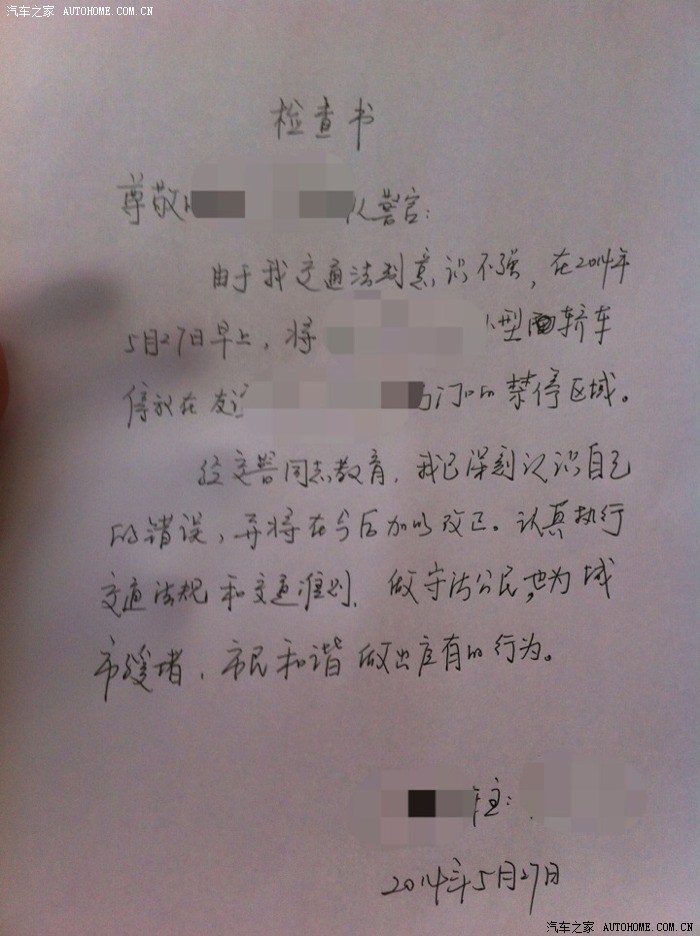 汽车之家 AUTOHOME.COM.CN
检查书
尊敬 队警官：
由于我交通法规意识不强，在2014年
5月27日早上，将 型 轿车
停放在友谊 门口的禁停区域。
经交警同志教育，我已深刻认识自己
的错误，并将在今后加以改正。认真执行
交通法规和交通准则，做守法公民，也为城
市缓堵，市民和谐做出应有的行为。
车主：
2014年5月27日
汽车之家 AUTOHOME.COM.CN